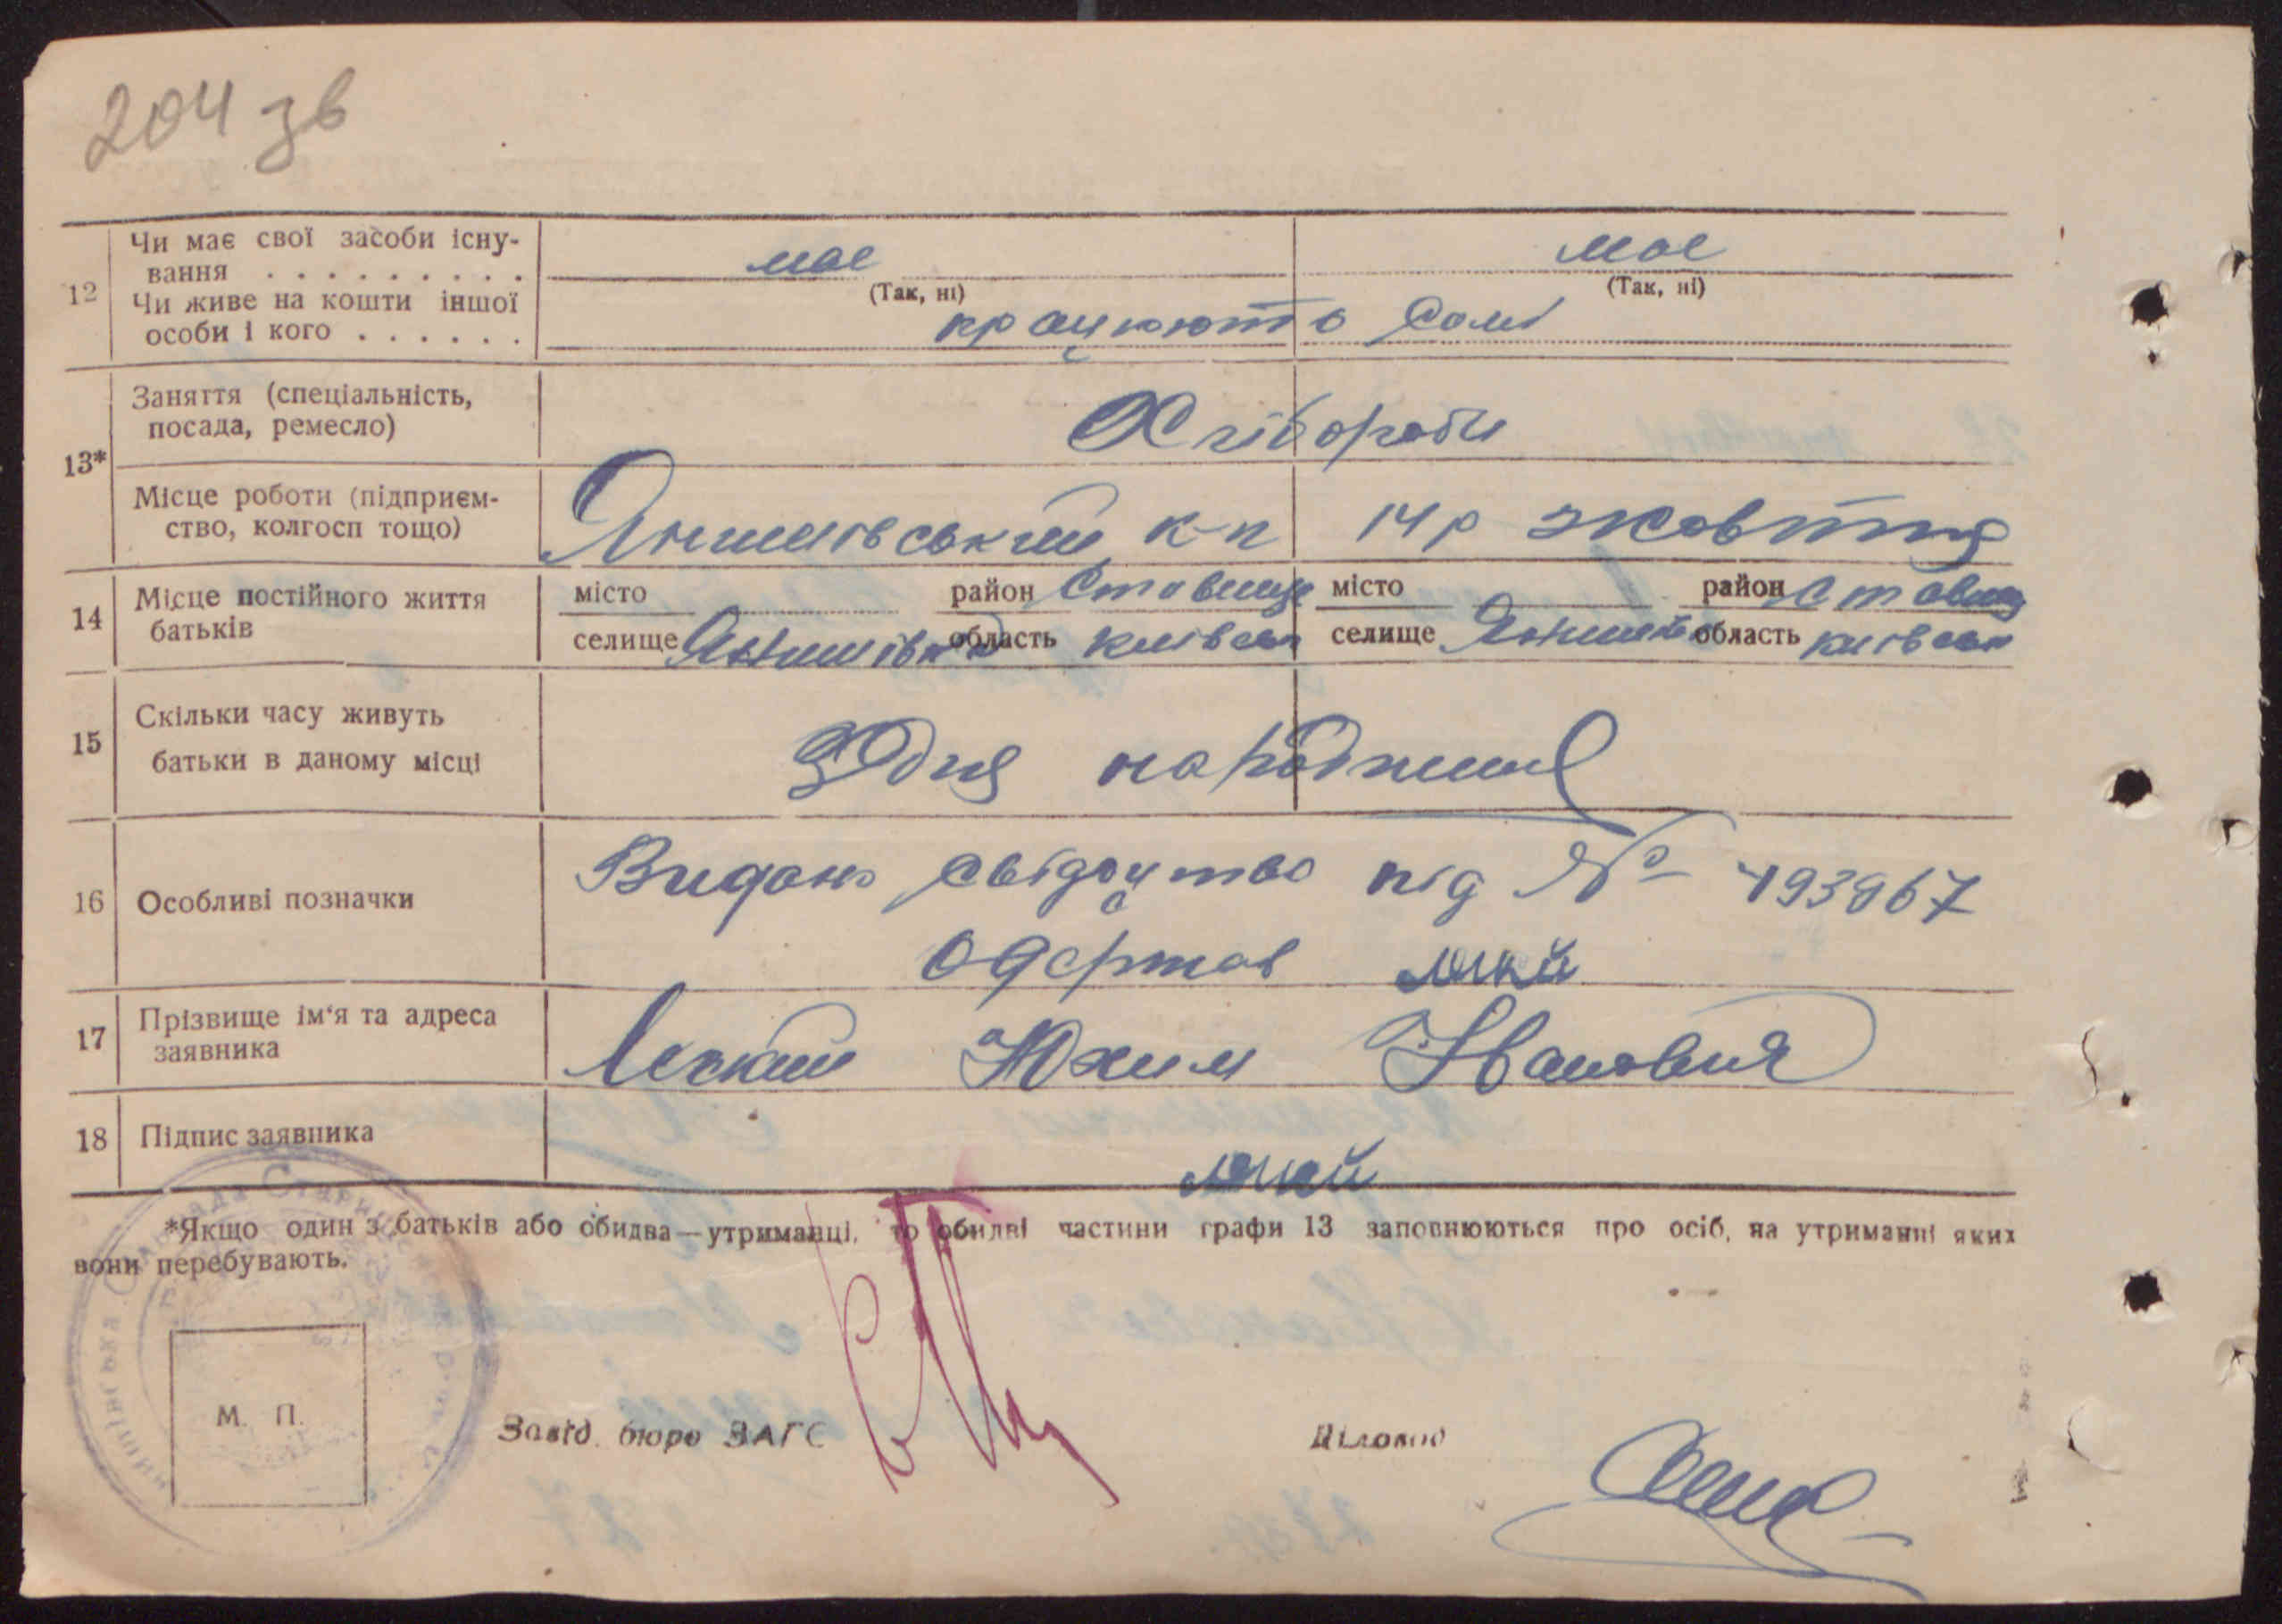 204 зв
12 Чи має свої засоби існу-
вання . . . . . . . . . має має
(Так, ні) (Так, ні)
Чи живе на кошти іншої
особи і кого . . . . . . працюють самі
13* Заняття (спеціальність,
посада, ремесло) Хлібороби
Місце роботи (підприєм-
ство, колгосп тощо) Янишівський к-п 14 р жовтня
14 Місце постійного життя
батьків
місто район Ставище місто район Ставищ
селище Янишівка область київськ селище область київськ
15 Скільки часу живуть
батьки в даному місці З Дня народження
16 Особливі позначки Видано свідоцтво під №
Одержав
17 Прізвище ім'я та адреса
заявника Юхим Іванович
18 Підпис заявника
*Якщо один з батьків або обидва—утриманці, то обидві частини графи 13 заповнюються про осіб, на утриманні яких
вони перебувають.
М. П.
Завід. бюро ЗАГС Діловод